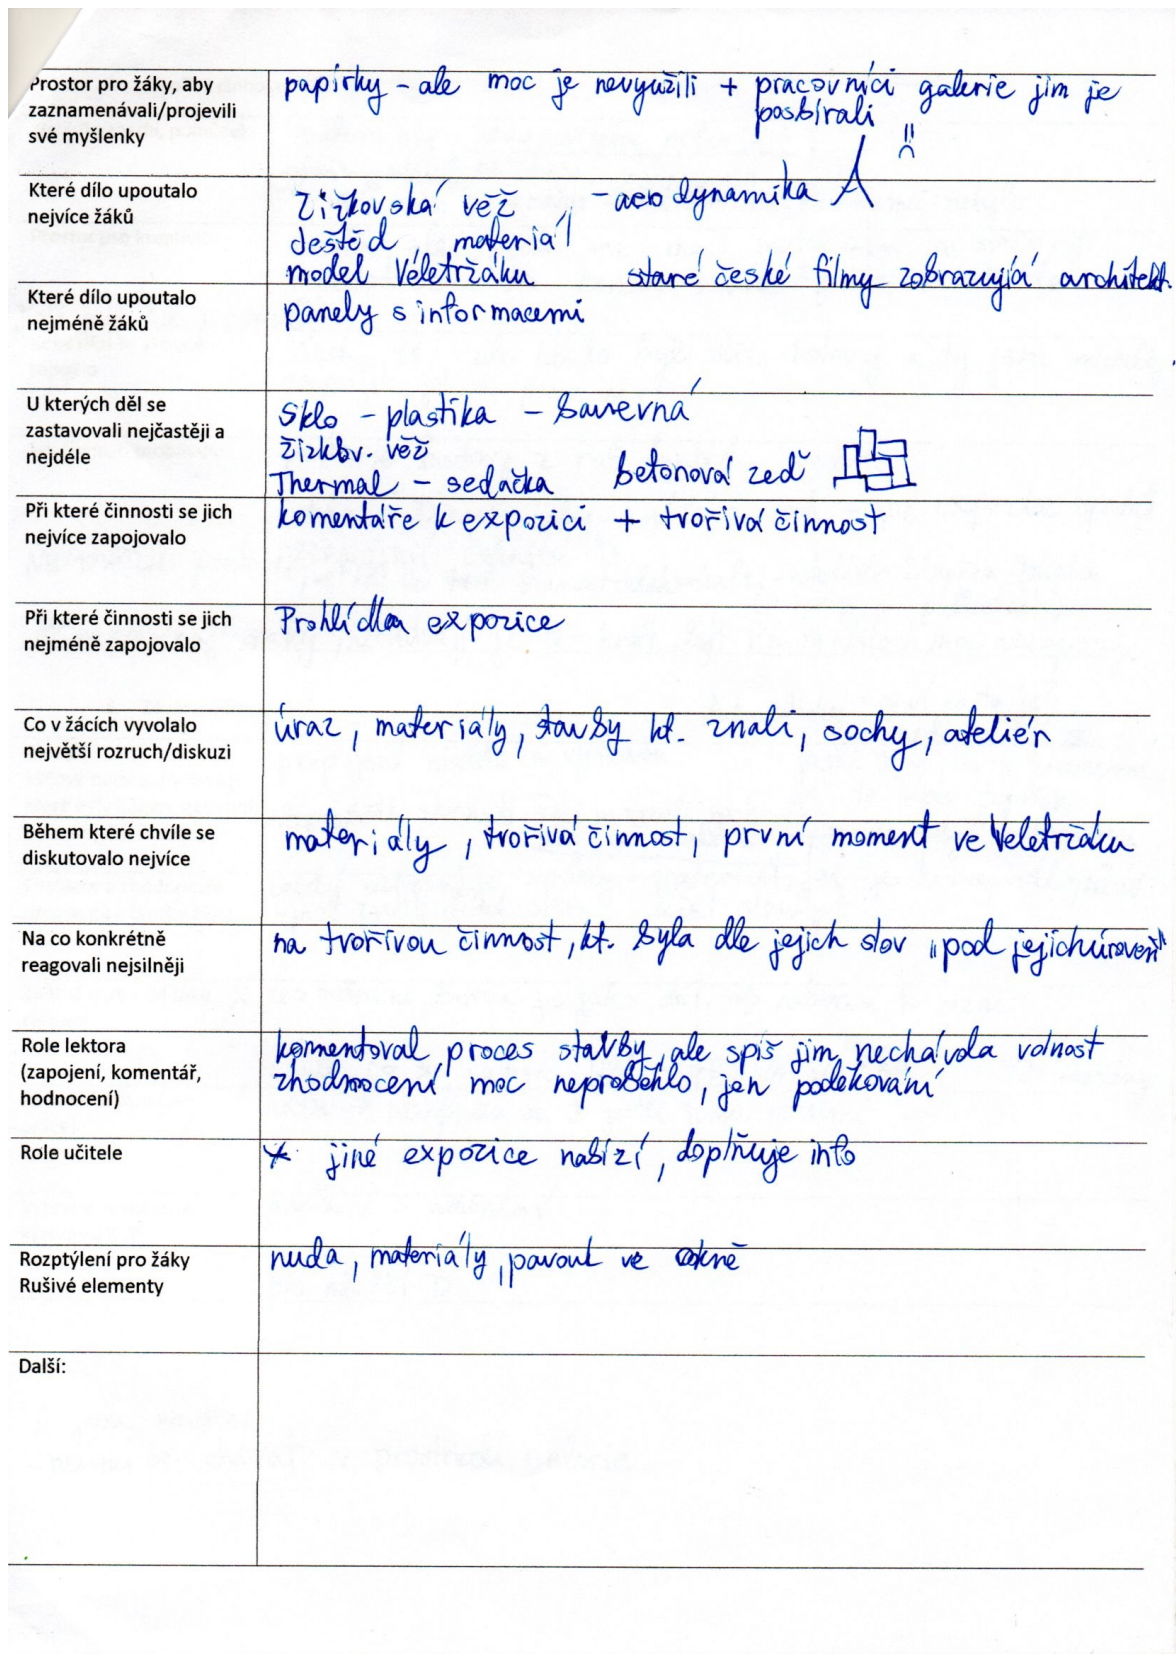 Prostor pro žáky, aby
zaznamenávali/projevili
své myšlenky
papírky - ale moc je nevyužili + pracovníci galerie jim je
posbírali
Které dílo upoutalo
nejvíce žáků
Žižkovská věž - aerodynamika
Ještěd, materiál
model Veletržáku staré české filmy zobrazující architekt.
Které dílo upoutalo
nejméně žáků
panely s informacemi
U kterých děl se
zastavovali nejčastěji a
nejdéle
Sklo - plastika - barevná
žižkov. věž
Thermal - sedačka betonová zeď
Při které činnosti se jich
nejvíce zapojovalo
komentáře k expozici + tvořivá činnost
Při které činnosti se jich
nejméně zapojovalo
Prohlídka expozice
Co v žácích vyvolalo
největší rozruch/diskuzi
úraz, materiály, stavby kt. znali, sochy, ateliér
Během které chvíle se
diskutovalo nejvíce
materiály, tvořivá činnost, první moment ve Veletržáku
Na co konkrétně
reagovali nejsilněji
na tvořivou činnost, kt. byla dle jejich slov "pod jejich úroveň"
Role lektora
(zapojení, komentář,
hodnocení)
komentoval proces stavby, ale spíš jim nechávala volnost
zhodnocení moc neproběhlo, jen poděkování
Role učitele
* jiné expozice nabízí, doplňuje info
Rozptýlení pro žáky
Rušivé elementy
nuda, materiály, pavouk ve okně
Další: